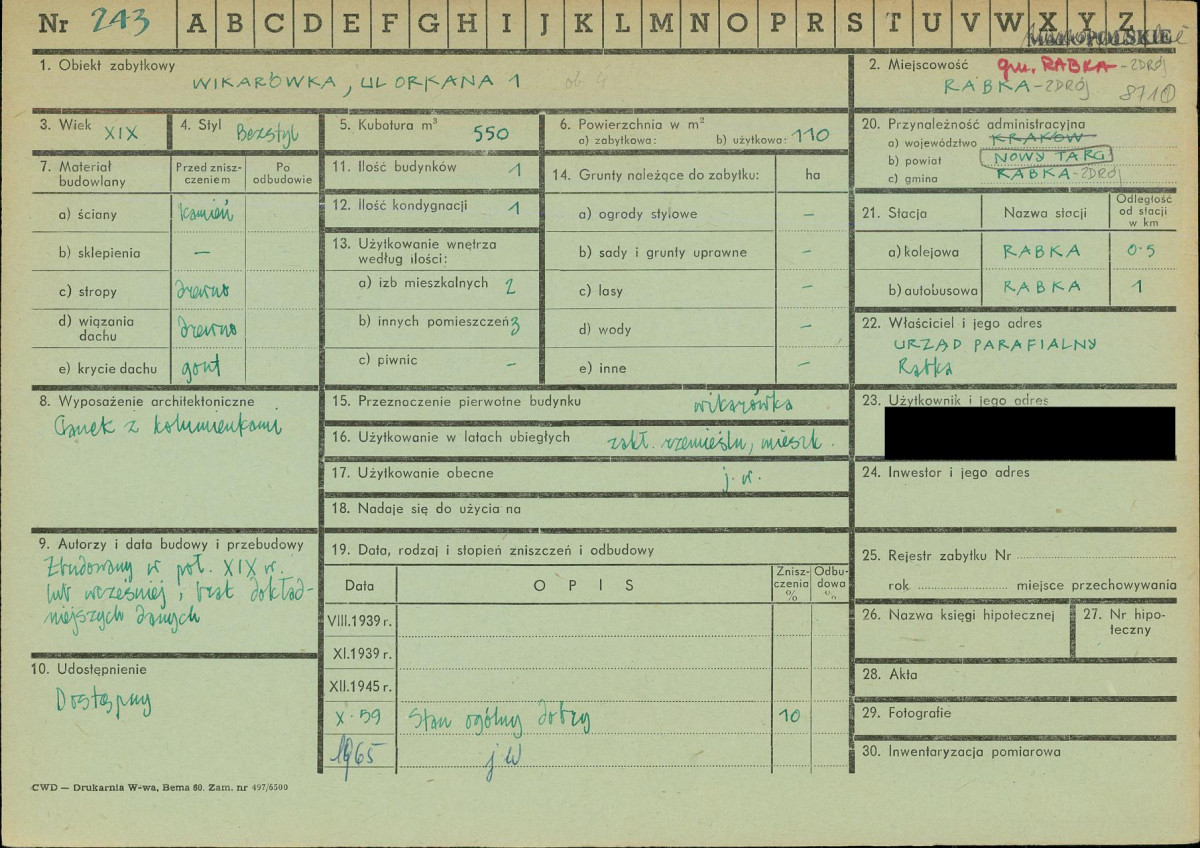 Nr 243 A B C D E F G H I J K L M N O P R S T U V W X Y Z
MAŁOPOLSKIE
1. Obiekt zabytkowy
WIKARÓWKA, UL ORKANA 1 ob 4
2. Miejscowość gm. RABKA-ZDRÓJ
RABKA-ZDRÓJ 871
3. Wiek XIX
4. Styl Bezstyl
5. Kubatura m³ 550
6. Powierzchnia w m²
a) zabytkowa: b) użytkowa: 110
20. Przynależność administracyjna
a) województwo KRAKÓW
b) powiat NOWY TARG
c) gmina RABKA-ZDRÓJ
7. Materiał budowlany
Przed znisz-
czeniem
Po
odbudowie
a) ściany kamień
b) sklepienia —
c) stropy drewno
d) wiązania
dachu drewno
e) krycie dachu gont
11. Ilość budynków 1
12. Ilość kondygnacji 1
13. Użytkowanie wnętrza
według ilości:
a) izb mieszkalnych 2
b) innych pomieszczeń 3
c) piwnic —
14. Grunty należące do zabytku: ha
a) ogrody stylowe —
b) sady i grunty uprawne —
c) lasy —
d) wody —
e) inne —
21. Stacja Nazwa stacji Odległość
od stacji
w km
a) kolejowa RABKA 0.5
b) autobusowa RABKA 1
22. Właściciel i jego adres
URZĄD PARAFIALNY
Rabka
8. Wyposażenie architektoniczne
Ganek z kolumienkami
15. Przeznoczenie pierwotne budynku wikarówka
16. Użytkowanie w latach ubiegłych zakł. rzemieśln, mieszk.
17. Użytkowanie obecne j. w.
18. Nadaje się do użycia na
23. Użytkownik i jego adres
24. Inwestor i jego adres
9. Autorzy i data budowy i przebudowy
Zbudowany w poł. XIX w.
lub wcześniej, brak dokład-
niejszych danych
10. Udostępnienie
Dostępny
19. Data, rodzaj i stopień zniszczeń i odbudowy
Data OPIS Znisz-
czenia
% Odbu-
dowa
%
VIII.1939 r.
XI.1939 r.
XII.1945 r.
X.59 Stan ogólny dobry 10
1965 j W
25. Rejestr zabytku Nr
rok miejsce przechowywania
26. Nazwa księgi hipotecznej
27. Nr hipo-
teczny
28. Akta
29. Fotografie
30. Inwentaryzacja pomiarowa
CWD — Drukarnia W-wa, Bema 60. Zam. nr 497/6500